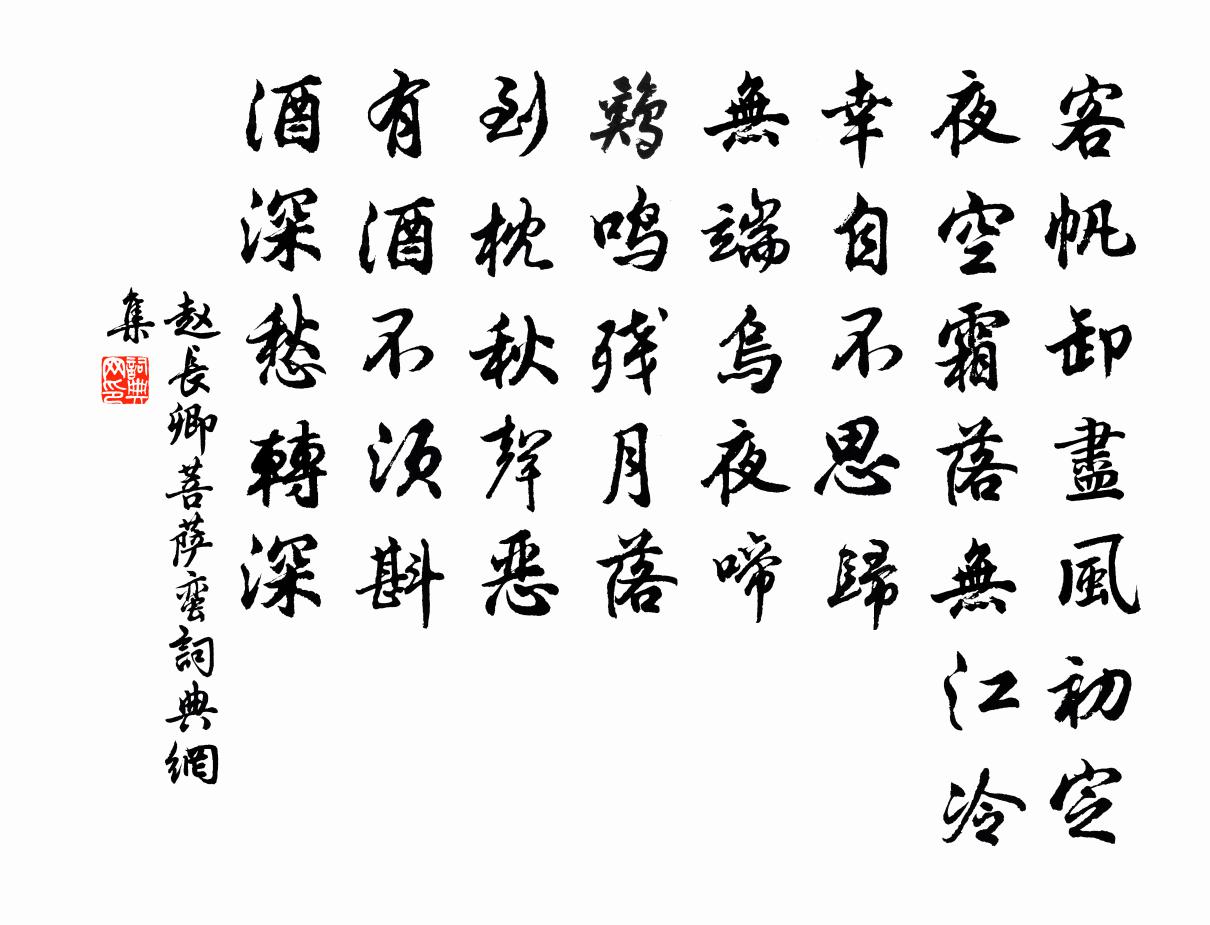 客帆卸盡風初定
夜空霜落無江冷
幸自不思歸
無端烏夜啼
鷄鳴残月落
到枕秋聲恶
有酒不須斟
酒深愁轉深
赵長卿菩萨蛮詞典網
集
詞典
网印